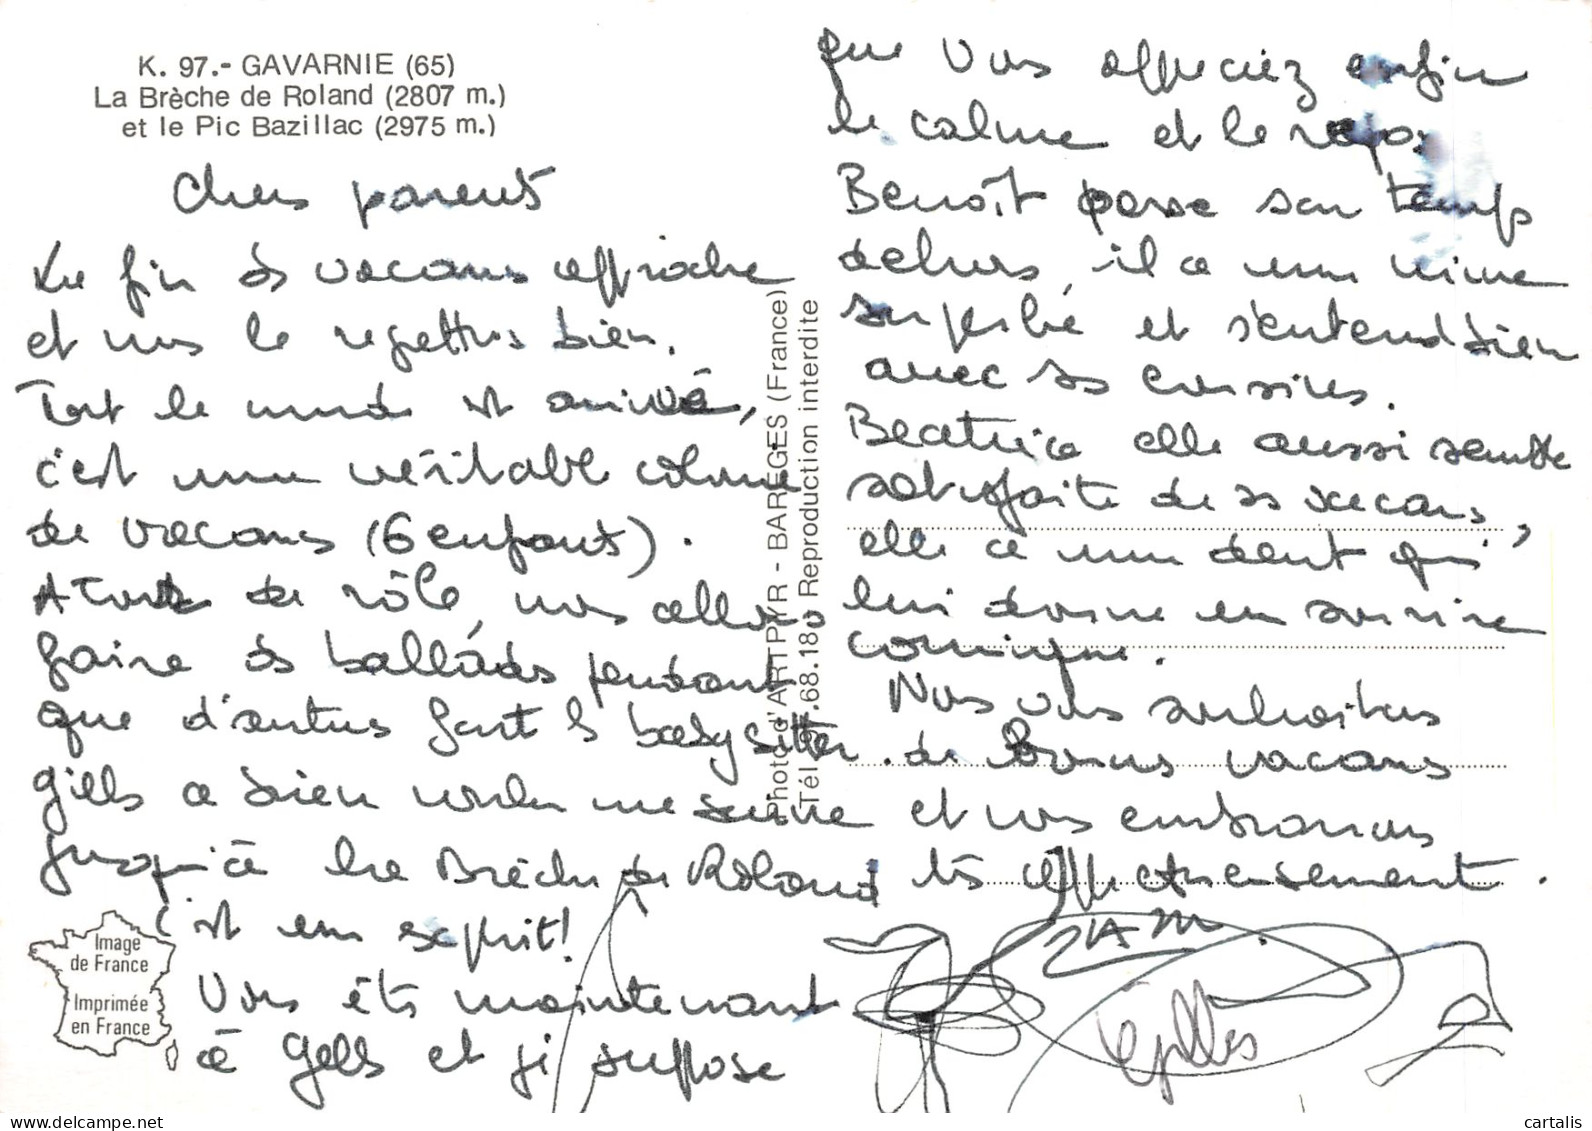 K. 97.- GAVARNIE (65)
La Brèche de Roland (2807 m.)
et le Pic Bazillac (2975 m.)
Chers parents
La fin des vacances approche
et nous le regettons bien.
Tout le monde est arrivé,
c'est une véritable colonie
de vacances (6 enfants).
A tour de rôle, nous allons
faire des ballades pendant
que d'autres font le babysitter.
Gilles a bien voulu me suivre
jusqu'à la Brèche de Roland
c'est un exploit!
Vous êtes maintenant
à et je suppose
que vous appreciez enfin
le calme et le repos
Benoît passe son temps
dehors, il a une mine
superbe et s'entend bien
avec ses cousines.
Beatrice elle aussi semble
satisfaite de ses vacances,
elle a une dent qui
lui donne un sourire
comique.
Nous vous souhaitons
de Bonnes vacances
et vous embrassons
très affectueusement.
Gilles
Photo d'ARTPYR - BAREGES (France)
Tél. 68.18 Reproduction interdite
Image
de France
Imprimée
en France
cartalis